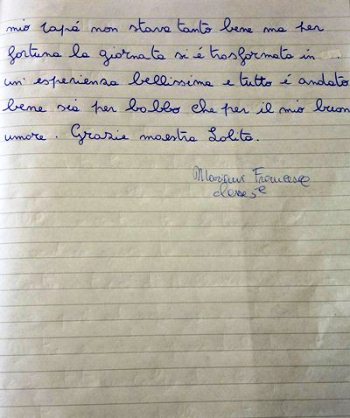 mio papá non stava tanto bene ma per
fortuna la giornata si é trasformata in
un' esperienza bellissima e tutto é andato
bene sia per babbo che per il mio buon
umore. Grazie maestra Lolita.
Francesco
classe